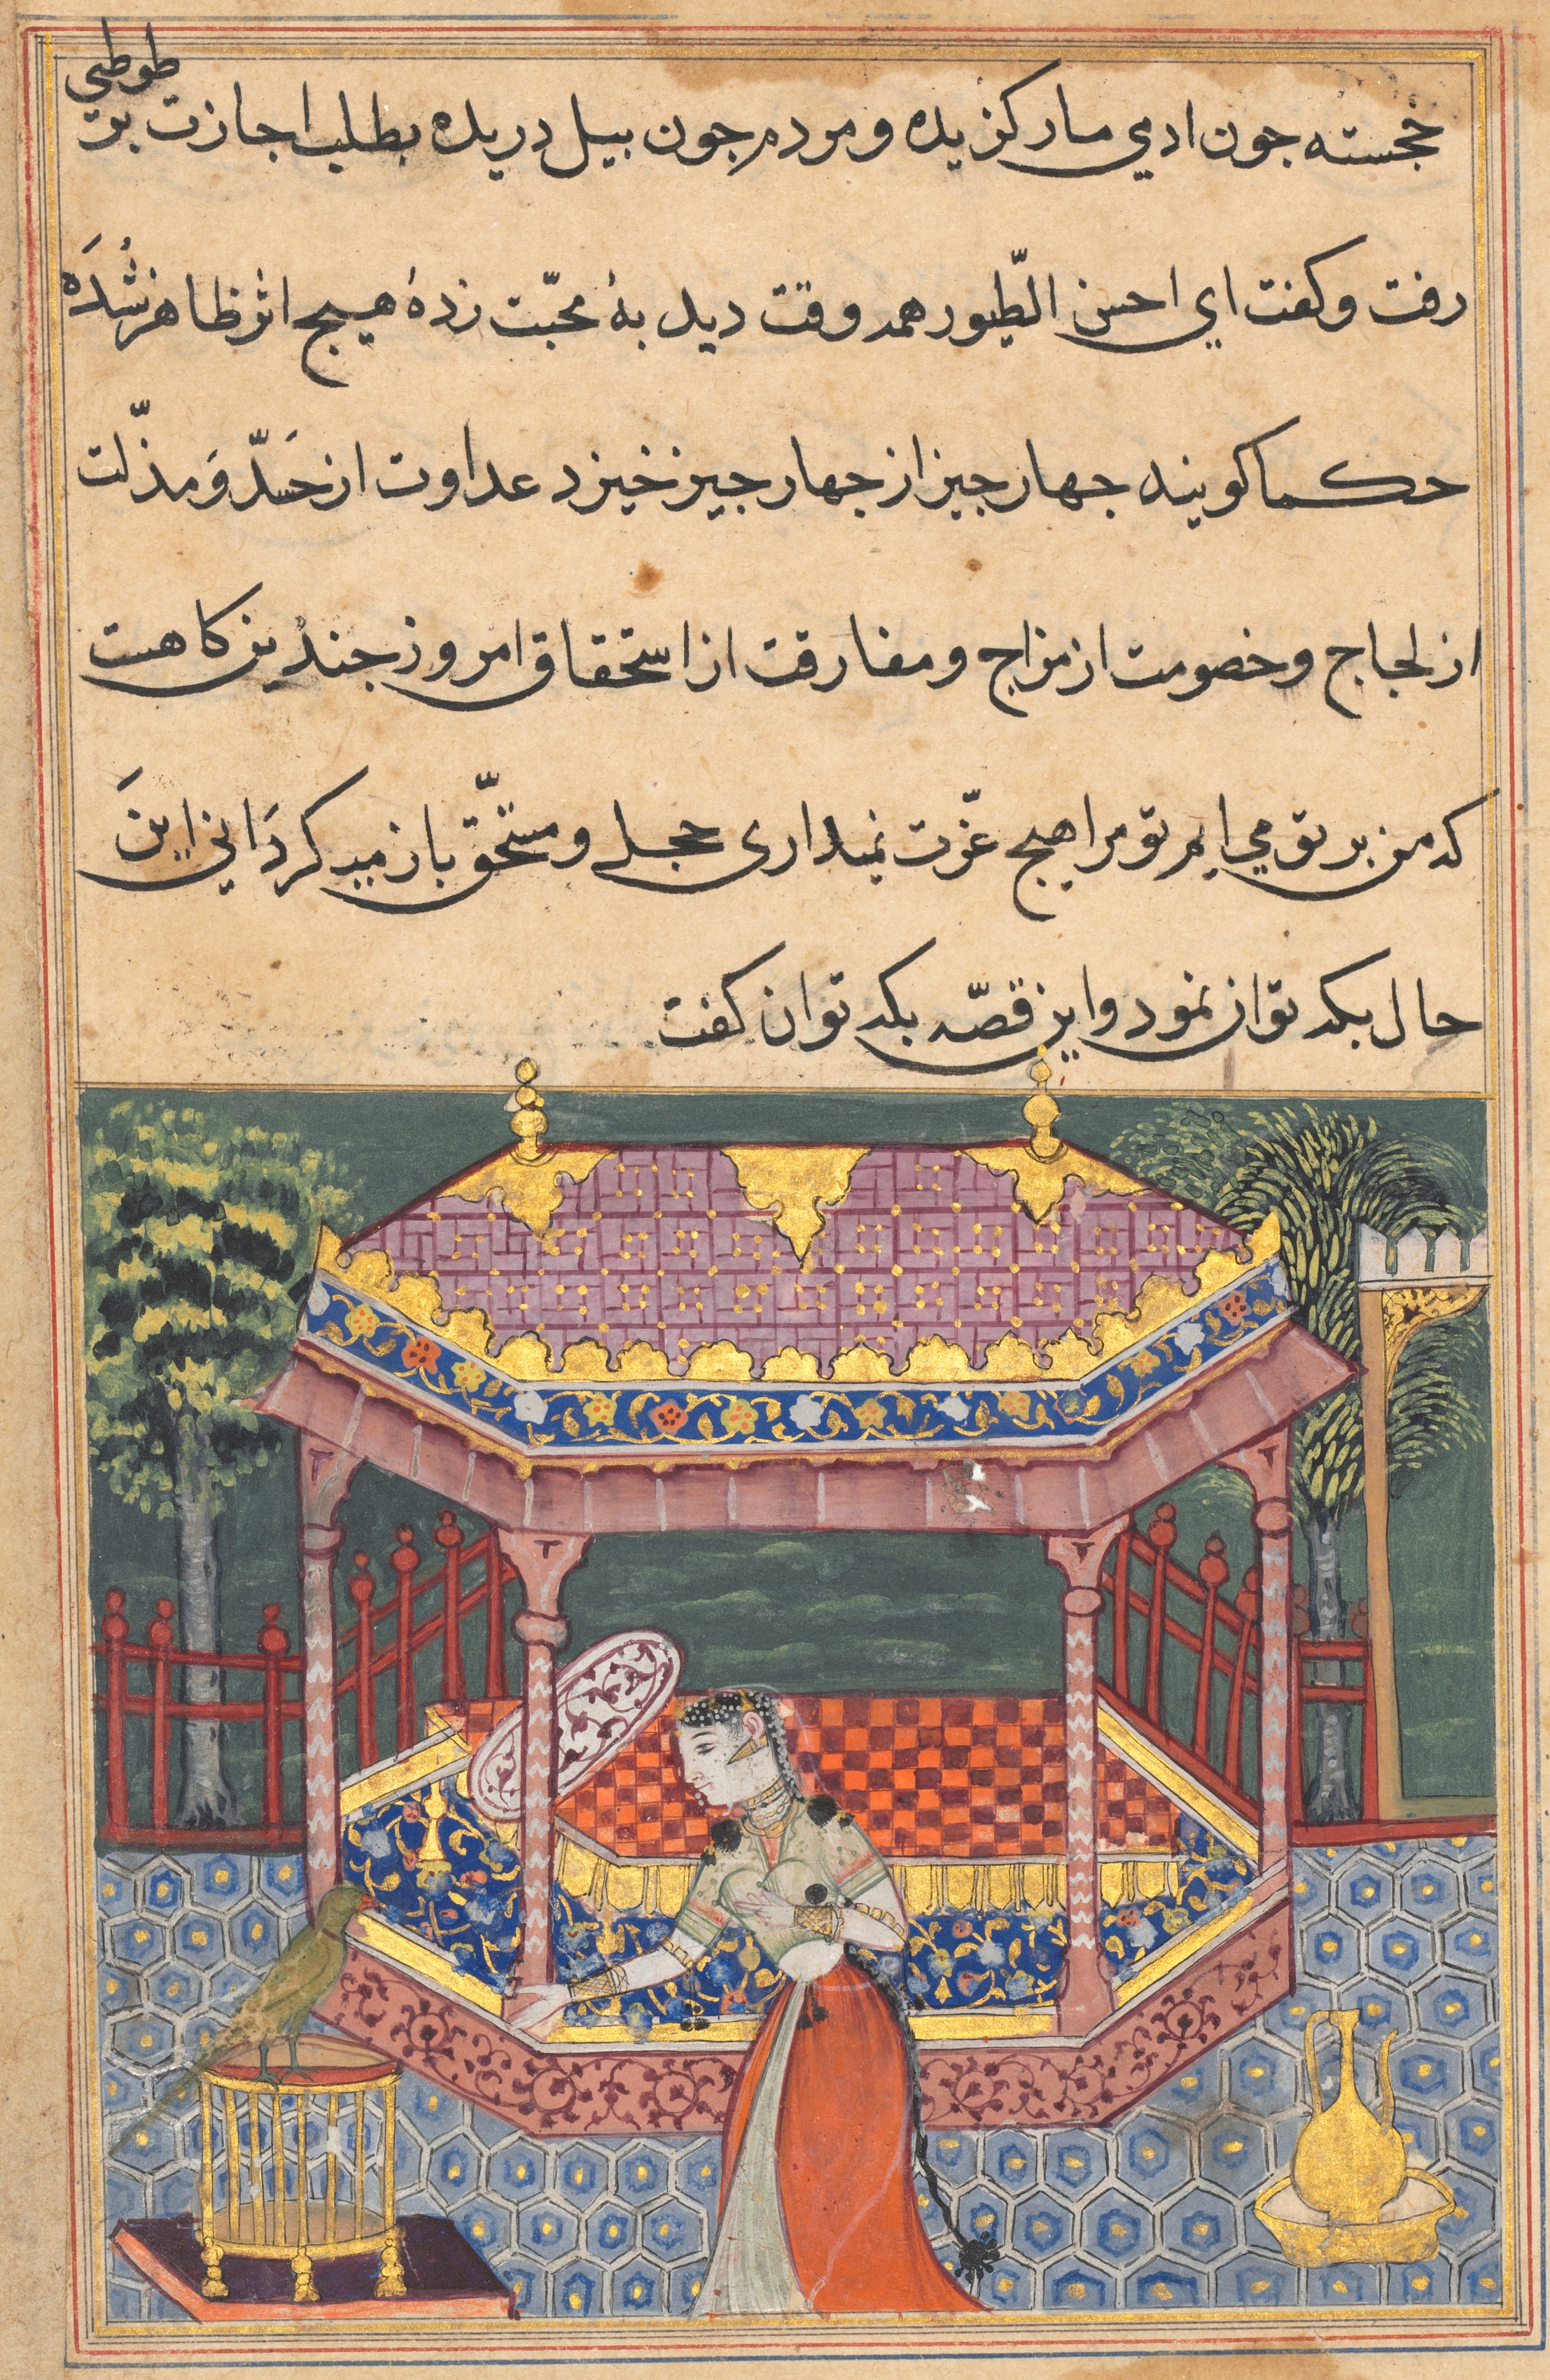 خجسته جون ادمي مار كزيده و مردم جون بيل دريده بطلب اجازت بر طوطي
رفت و كفت اي احسن الطّيور همه وقت ديد بهٔ محبّت زدهٔ هيج اثر ظاهر نشُدَه
حكما كويند جهار جيز از جهار جيز خيزد عداوت از حَسدّ وَ مذّلت
از لجاج و خصومت از مزاج و مفارقت از استحقاق امروز جندين كاهست
كه من بر تو مي ايم تو مرا هيج عزّت نميداري و مستحقّ باز ميكردَاني اينَ
حال بكه توان نمود و اين قصّه بكه توان كفت